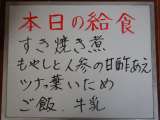 本日の給食
すき焼き煮
もやしと人参の甘酢あえ
ツナっ葉いため
ご飯 牛乳